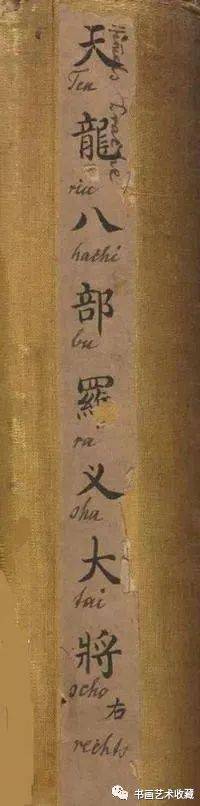 天龍八部羅义大將
Ten
riu
hachi
bu
ra
sha
tai
scho
右
rechts
书画艺术收藏